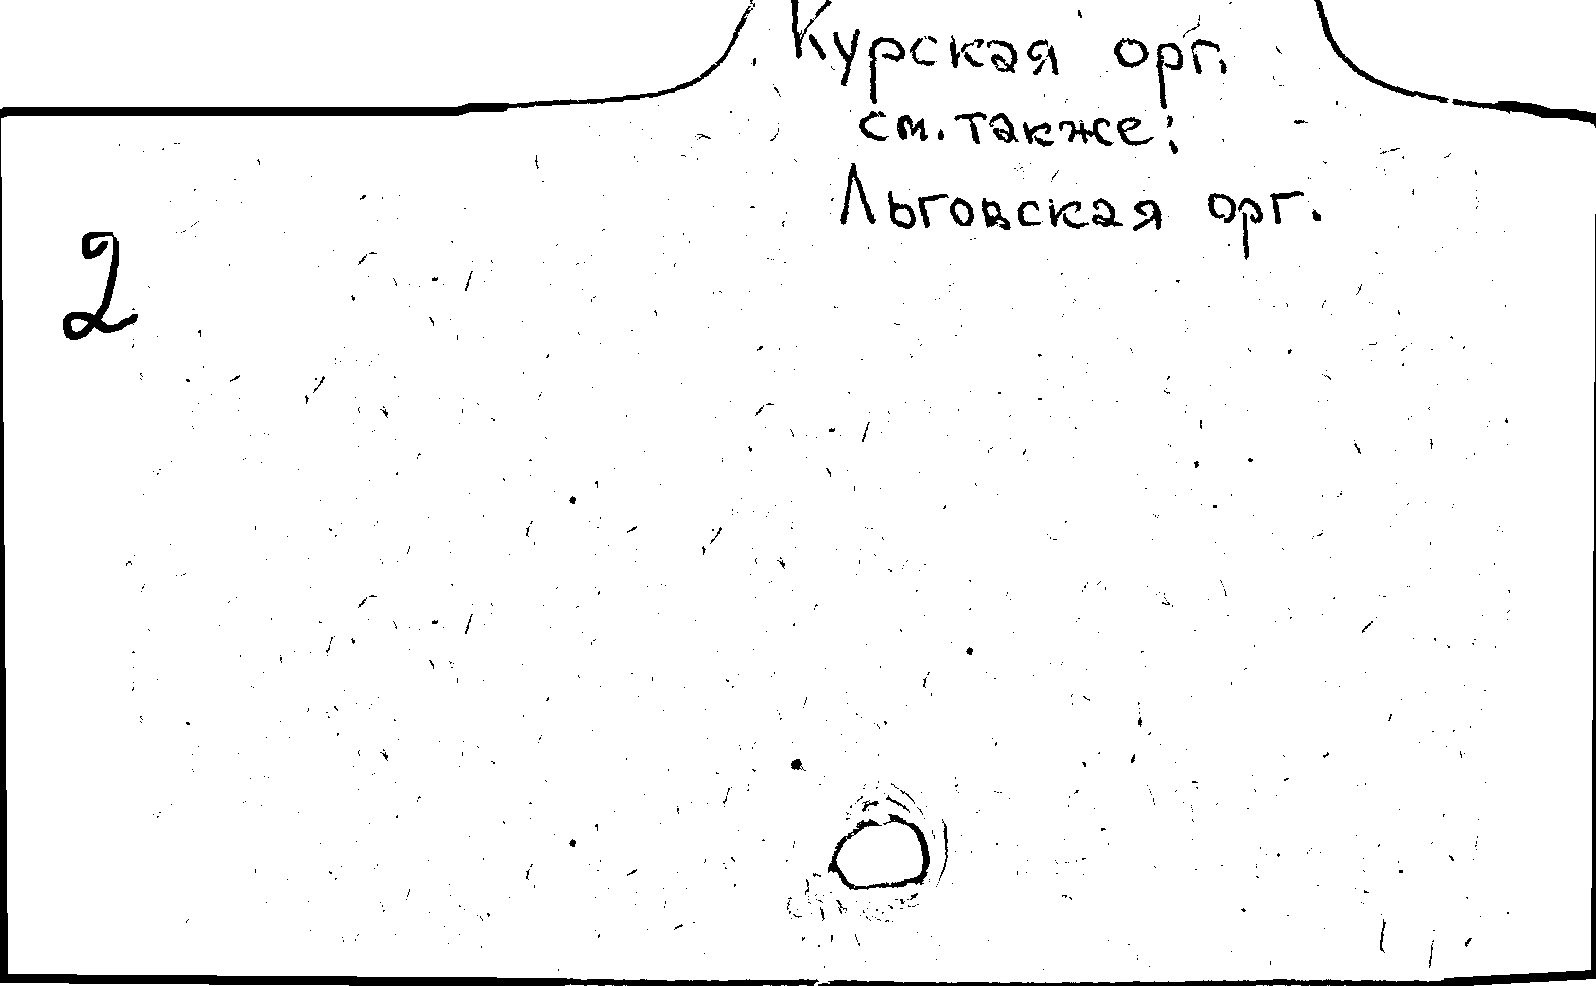 Курская орг.
см. также:
Льговская орг.
2